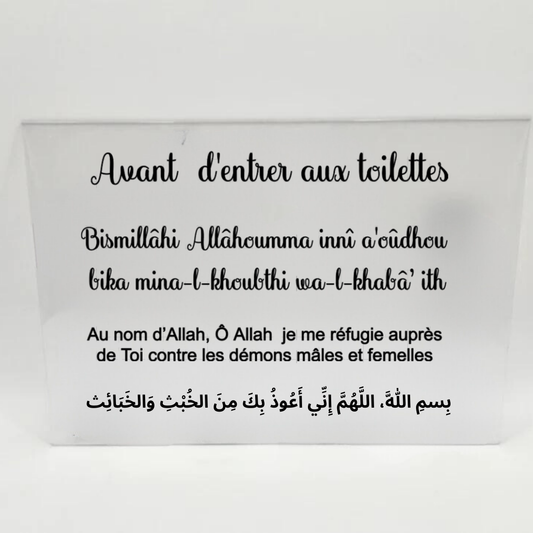 Avant d'entrer aux toilettes
Bismillâhi Allâhoumma innî a'oûdhou
bika mina-l-khoubthi wa-l-khabâ' ith
Au nom d’Allah, Ô Allah je me réfugie auprès
de Toi contre les démons mâles et femelles
بِسمِ اللهَّ، اللَّهُمَّ إِنِّي أَعُوذُ بِكَ مِنَ الخُبْثِ وَالخَبَائِث